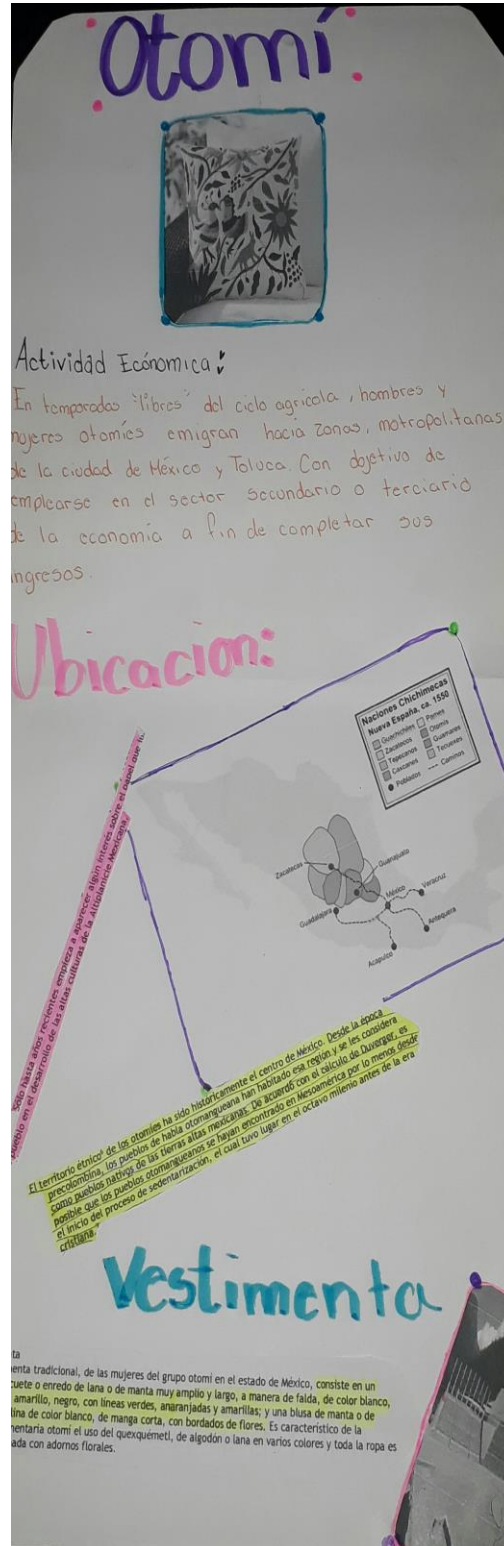 Otomí
Actividad Ecónomica:
En temporadas "libres" del ciclo agrícola, hombres y
mujeres otomíes emigran hacia zonas, motropolitanas
de la ciudad de México y Toluca. Con objetivo de
emplearse en el sector secundario o terciario
de la economía a fin de completar sus
ingresos.
Ubicacion:
Naciones Chichimecas
Nueva España, ca. 1550
Guachichiles Pames
Zacatecos Otomís
Tepecanos Guamares
Caxcanes Tecuexes
Poblados Caminos
Zacatecas
Guanajuato
Guadalajara
México
Veracruz
Antequera
Acapulco
Solo hasta años recientes empieza a aparecer algún interés sobre el papel que
pueblo en el desarrollo de las altas culturas de la Altiplanicie Mexicana
El territorio étnico de los otomíes ha sido históricamente el centro de México. Desde la época
precolombina, los pueblos de habla otomangueana han habitado esa región y se les considera
como pueblos nativos de las tierras altas mexicanas. De acuerdo con el cálculo de Duverger, es
posible que los pueblos otomangueanos se hayan encontrado en Mesoamérica por lo menos desde
el inicio del proceso de sedentarización, el cual tuvo lugar en el octavo milenio antes de la era
cristiana.
Vestimenta
ta
enta tradicional, de las mujeres del grupo otomí en el estado de México, consiste en un
uete o enredo de lana o de manta muy amplio y largo, a manera de falda, de color blanco,
amarillo, negro, con líneas verdes, anaranjadas y amarillas; y una blusa de manta o de
lina de color blanco, de manga corta, con bordados de flores. Es característico de la
mentaria otomí el uso del quexquémetl, de algodón o lana en varios colores y toda la ropa es
ada con adornos florales.